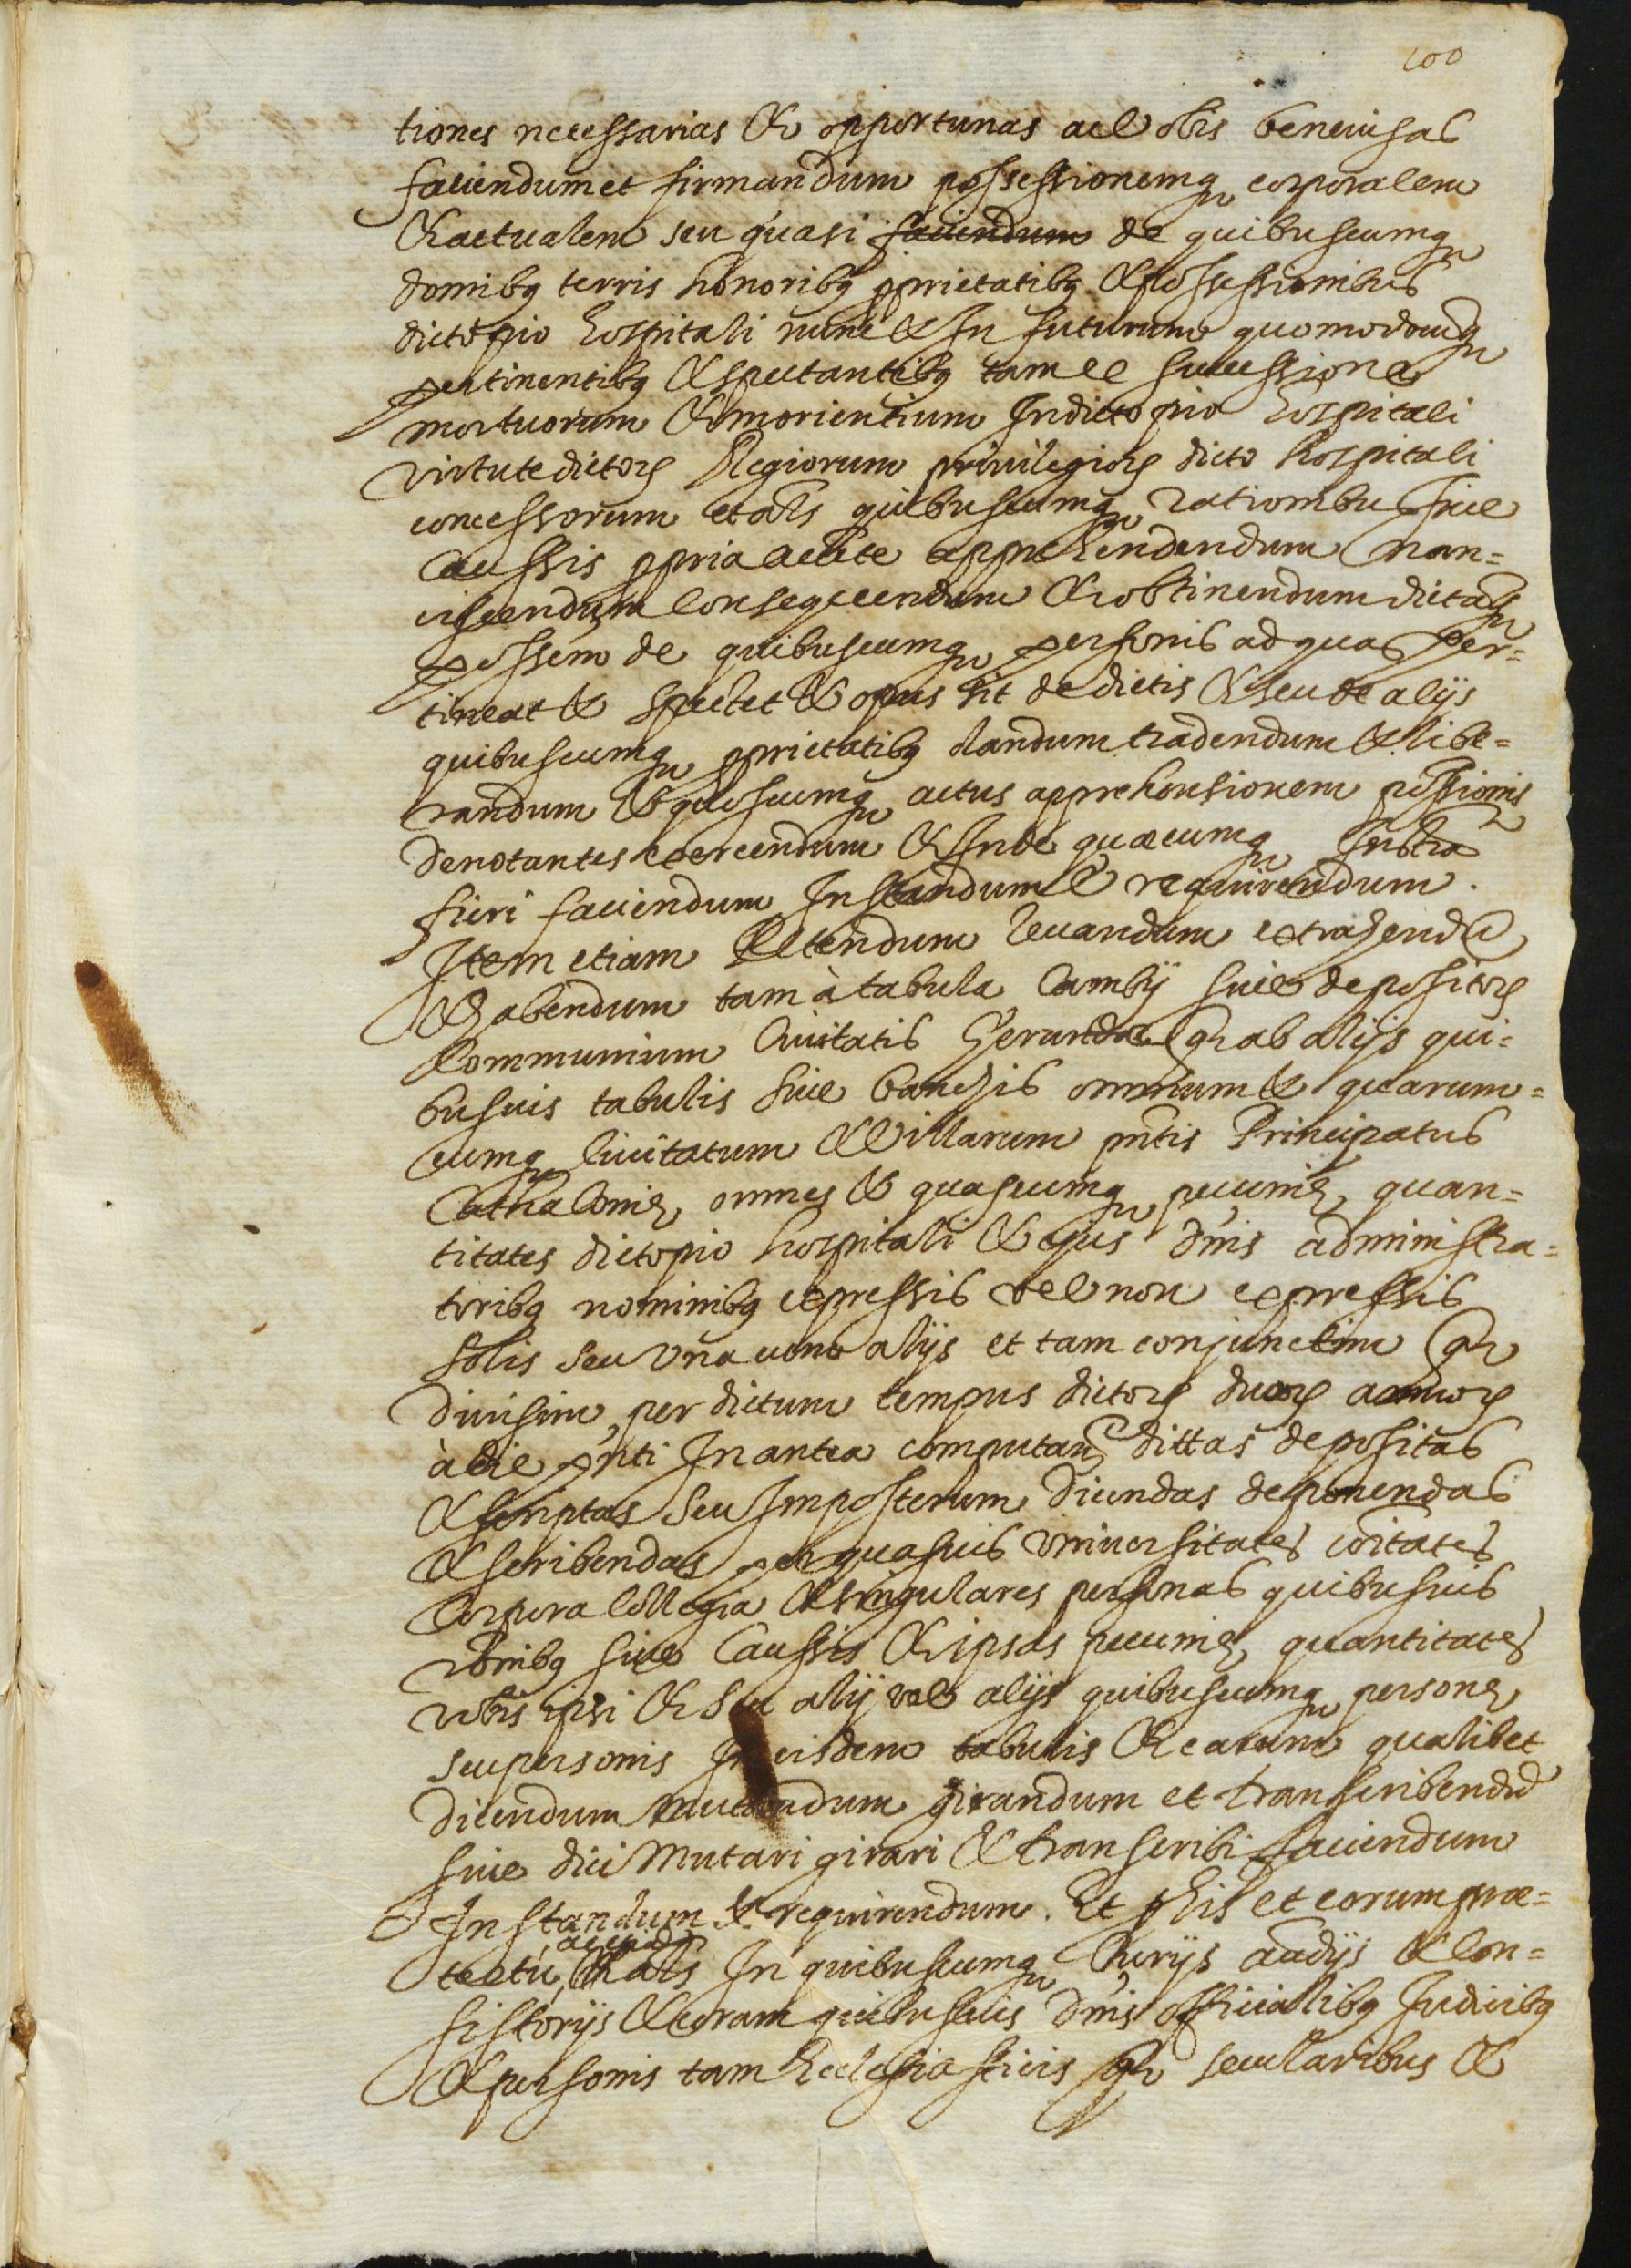 100
tiones necessarias & opportunas ac vobis benevisas
faciendum et firmandum possessionemq₃ corporalem
& actualem seu quasi faciendum de quibuscumq₃
domibq terris honoribq pprietatibq & possessionibus
dicto pio hospitali nunc & In futurum quomodocumq₃
pertinentibq & spectantibq tam ex successione
mortuorum & morientium In dicto pio hospitali
virtute dictoꝝ Regiorum privilegioꝝ dicto hospitali
concessorum et als quibuscumq₃ rationibus sive
Caussis ppria aucte apprehendendum nan=
ciscendum Consequendum & obtinendum dictaq₃
possem de quibuscumq₃ personis ad quas per=
tineat & spectet & opus sit de dictis & seu de alijs
quibuscumq₃ pprietatibq dandum tradendum & libe=
randum & quoscumq₃ actus apprehensionem possionis
denotantes exercendum & Inde quæcumq₃ Instra
fieri faciendum Instandum & requirendum.
Item etiam Petendum levandum extrahendũ
& habendum tam à tabula Cambij sive depositoꝝ
Communium Civitatis Gerundæ qᵐ ab alijs qui=
busvis tabulis sive banchis omnium & quarum=
cumq₃ Civitatum & Villarum pntis Principatus
Cathalonię, omnes & quascumq₃ pecunię, quan=
titates dicto pio hospitali & ejus dnis administra=
toribq nominibq expressis vel non expressis
solis seu vna cum alijs et tam conjunctim qᵐ
divisim, per dictum tempus dictoꝝ duoꝝ annoꝝ
à die pnti In antea computan dittas depositas
& scriptas seu Imposterum dicendas deponendas
& scribendas per quasvis Vniversitates coitates
Corpora Collegia & singulares personas quibusvis
rõnibq sive Caussis & ipsas pecunię, quantitates
vobis ipsi & seu alij vel alijs quibuscumq₃ personę,
seu personis In eisdem tabulis & earum qualibet
dicendum mutandum girandum et transcribendũ
sive dici mutari girari & transcribi faciendum
Instandum & requirendum. Et p his et eorum præ=
textu, & als In quibuscumq₃ Curijs audijs & Con=
sistorijs & coram quibusvis dnis officialibq Iudicibq
& personis tam Ecclesiasticis qᵐ secularibus &